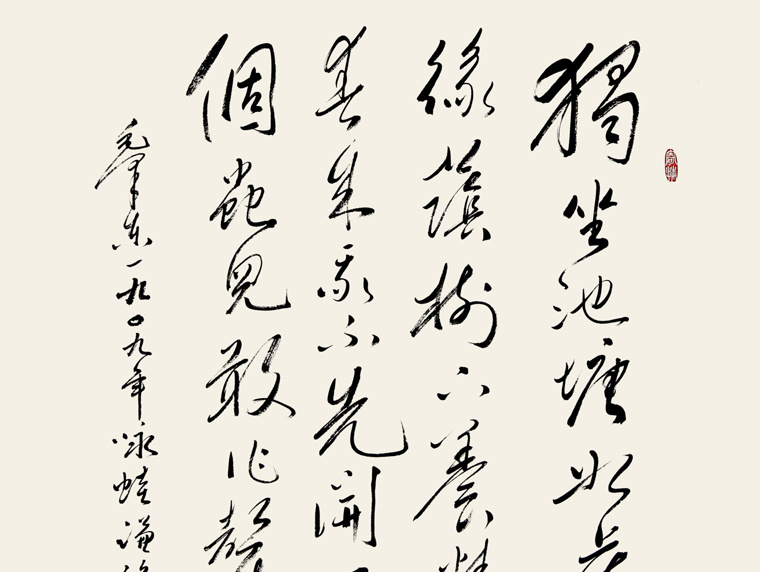 獨坐池塘如虎
綠蔭樹下養精
春來我不先開
個蟲兒敢作聲
毛澤東一九〇九年咏蛙謹